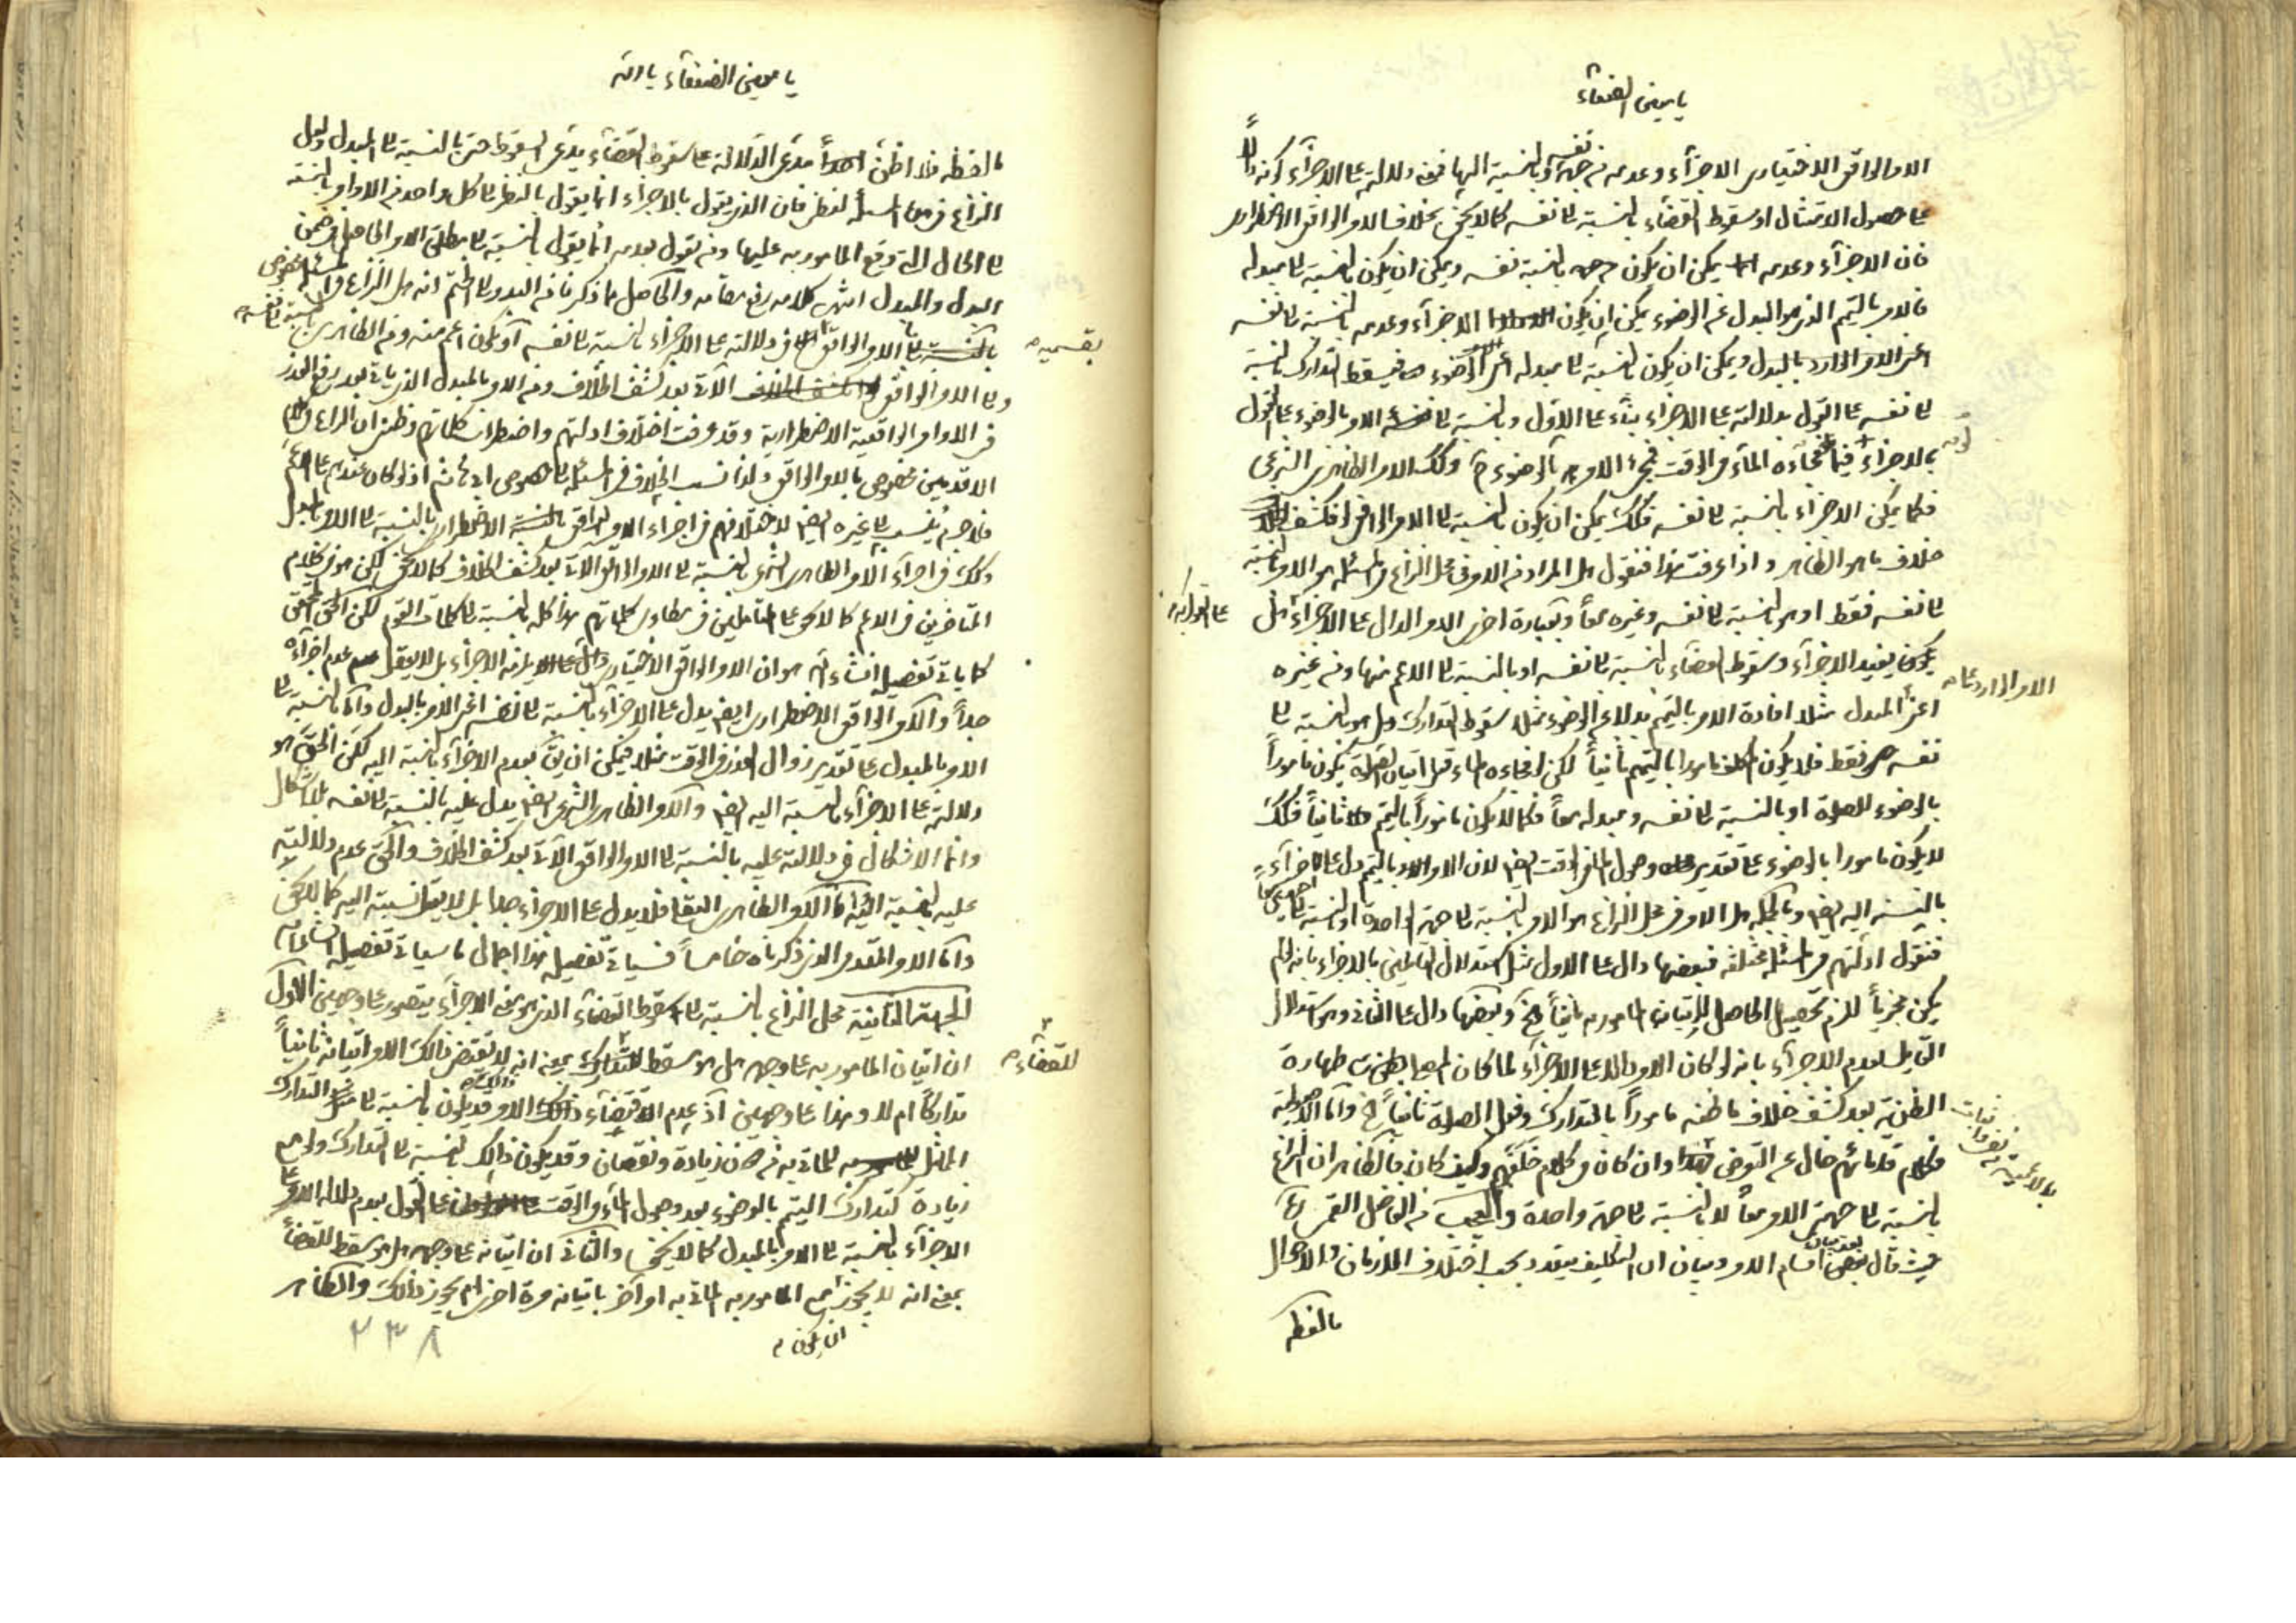 يا معين الضعفاء
الامر الواقعي الاختياري الاجزاء وعدمه من جهة نفسه وبالنسبة اليها فمعنى دلالته على الاجزاء كونه دالا
على حصول الامتثال او سقوط القضاء بالنسبة الى نفسه كما لا يخفى بخلاف الامر الواقعي الاضطراري
فان الاجزاء وعدمه يمكن ان يكون من جهة بالنسبة نفسه ويمكن ان يكون بالنسبة الى مبدله
فالامر بالتيمم الذي هو البدل عن الوضوء يمكن ان يكون الاجزاء وعدمه بالنسبة الى نفسه
اعني الامر الوارد بالبدل ويمكن ان يكون بالنسبة الى مبدله اعني الوضوء فيسقط التدارك بالنسبة
الى نفسه على القول بدلالته على الاجزاء بناء على الاول وبالنسبة الى الامر بالوضوء على القول
بالاجزاء فيما فجاءه الماء في الوقت فيجزئ الامر بالوضوء ح وكذلك الامر الظاهري الشرعي
فكما يمكن الاجزاء بالنسبة الى نفسه فكذلك يمكن ان يكون بالنسبة الى الامر الواقعي اذ انكشف
خلاف ما هو الظاهر واذا عرفت هذا فنقول هل المراد من الامر في محل النزاع في المسئلة هو الامر بالنسبة
الى نفسه فقط او هو بالنسبة الى نفسه وغيره معا وبعبارة اخرى الامر الدال على الاجزاء هل
على القول به
يكون يفيد الاجزاء وسقوط القضاء بالنسبة الى نفسه او بالنسبة الى الاعم منها ومن غيره
الامر الوارد عليه
اعني المبدل مثلا افادة الامر بالتيمم بدلا عن الوضوء مثلا سقوط التدارك وهل هو بالنسبة الى
نفسه فقط فلا يكون المكلف مامورا بالتيمم ثانيا لكن اذ جاءه الماء قبل اتيان الصلوة يكون مامورا
بالوضوء للصلوة او بالنسبة الى نفسه ومبدله معا فكما لا يكون مامورا بالتيمم ثانيا فكذلك
لا يكون مامورا بالوضوء على تقدير وصول الماء في الوقت ايضا لان الامر بالتيمم دل على الاجزاء
بالنسبة اليه ايضا وبالجملة هل الامر في محل النزاع هو الامر بالنسبة الى جهة واحدة او بالنسبة الى الجهتين معا
فنقول ادلتهم في المسئلة مختلفة فبعضها دال على الاول مثل استدلال القائلين بالاجزاء بانه لو لم
يكن مجزيا للزم تحصيل الحاصل لاتيان المامور به ثانيا الخ وبعضها دال على الثاني وهو استدلال
القائل بعدم الاجزاء بانه لو كان الامر دالا على الاجزاء لما كان المصلي بظن طهارة
الظنية بعد كشف خلاف ما ظنه مامورا بالتدارك وفعل الصلوة ثانيا الخ واما
فكلام قدمائهم خال عن التعرض وان كان في كلام خلفهم وكيف كان فالظاهر ان النزاع
بالنسبة الى جهتي الامر معا لا بالنسبة الى جهة واحدة والعجب من الفاضل القمي ره
حيث قال بعد بيان اقسام الامر وبيان ان التكليف يتعدد بحسب اختلاف الازمان والاحوال
ما لفظه
يا معين الضعفاء يا الله
ما لفظه فلا اظن احدا مدعي الدلالة على سقوط القضاء يدعي السقوط حتى بالنسبة الى المبدل ولعل
النزاع في هذه المسئلة لفظي فان الذي يقول بالاجزاء انما يقول بالنظر الى كل واحد من الاوامر بالنسبة
الى الحال التي وقع المامور به عليها ومن يقول بعدمه انما يقول بالنسبة الى مطلق الامر الحاصل في ضمن
البدل والمبدل انتهى كلامه رفع مقامه والحاصل ما ذكرنا من البدو الى الختم انه هل النزاع في المسئلة مخصوص
بالامر الواقعي في دلالته على الاجزاء بالنسبة الى نفسه او يكون اعم منه ومن الظاهري بالنسبة الى نفسه
بقسميه
والى الامر الواقعي الآتي بعد كشف الخلاف ومن الامر بالمبدل الذي ياتي بعد رفع العذر
في الاوامر الواقعية الاضطرارية وقد عرفت اختلاف ادلتهم واضطراب كلماتهم وظني ان النزاع في كلام
الاقدمين مخصوص بالامر الواقعي ولذا نسب الخلاف في المسئلة بخصوص ابي هاشم اذ لو كان عندهم على الاعم
فلا جرم ينسب الى غيره ايضا لاختلافهم في اجزاء الامر الواقعي الاضطراري بالنسبة الى الامر بالمبدل
وكذلك في اجزاء الامر الظاهري الشرعي بالنسبة الى الامر الواقعي الآتي بعد كشف الخلاف كما لا يخفى لكن هو في كلام
المتاخرين في الاعم كما لا يخفى على المتاملين في مطاوي كلماتهم هذا كله بالنسبة الى كلمات القوم لكن الحق الحقيق
كما ياتي تفصيله انشاء الله هو ان الامر الواقعي الاختياري يلزمه الاجزاء بل لا يعقل عدم اجزائه
جدا والامر الواقعي الاضطراري ايضا يدل على الاجزاء بالنسبة الى نفسه اعني الامر بالبدل واما بالنسبة الى
الامر بالمبدل على تقدير زوال العذر في الوقت مثلا فيمكن ان يق بعدم الاجزاء بالنسبة اليه لكن الحق هو
دلالته على الاجزاء بالنسبة اليه ايضا والامر الظاهري الشرعي ايضا يدل عليه بالنسبة الى نفسه بلا اشكال
وانما الاشكال في دلالته عليه بالنسبة الى الامر الواقعي الآتي بعد كشف الخلاف والحق عدم دلالته
عليه بالنسبة اليه واما الامر الظاهري العقلي فلا يدل على الاجزاء جدا بل لا يعقل نسبته اليه كما لا يخفى
واما الامر المقدمي الذي ذكرناه خامسا فسياتي تفصيله هذا اجمال ما سياتي تفصيله انشاء الله
الجهة الثانية محل النزاع بالنسبة الى سقوط القضاء الذي هو معنى الاجزاء يتصور على وجهين الاول
ان اتيان المامور به على وجهه هل هو مسقط بمعنى انه لا يقتضي ذلك الامر اتيانه ثانيا
للقضاء
تداركا ام لا وهذا على وجهين اذ عدم الاقتضاء ذلك الامر قد يكون بالنسبة الى مثل التدارك
المثل للماتي به من دون زيادة ونقصان وقد يكون ذلك بالنسبة الى التدارك ولو مع
زيادة كتدارك التيمم بالوضوء بعد وصول الماء في الوقت على القول بعدم دلالة الامر على
الاجزاء بالنسبة الى الامر بالمبدل كما لا يخفى والثاني ان اتيانه على وجهه هل هو مسقط للقضاء
بمعنى انه لا يجوز مع المامور به الماتي به امر آخر باتيانه مرة اخرى ام يجوز ذلك والظاهر
ان يكون
٢٣٨